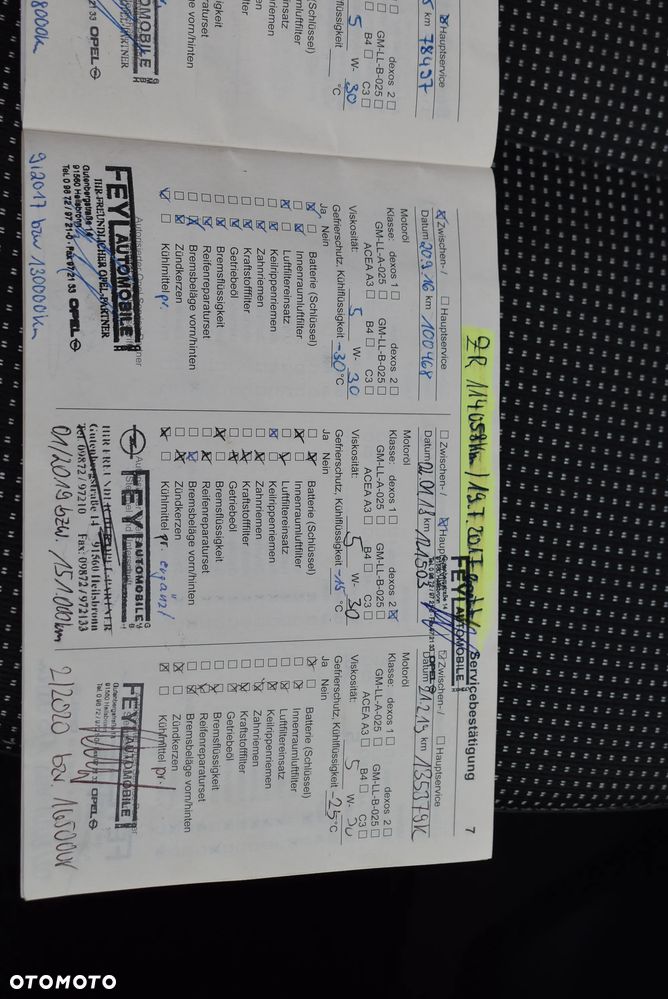 Hauptservice
km 78497
dexos 2
GM-LL-B-025
B4 C3
5 W- 30
(Schlüssel)
Innenraumluftfilter
vorn/hinten
Servicebestätigung 7
ZR 114058km / 19.7.2017
FEYL AUTOMOBILE
Zwischen-/ Hauptservice
Datum 20.9.16 km 100468
Motoröl
Klasse: dexos 1 dexos 2
GM-LL-A-025 GM-LL-B-025
ACEA A3 B4 C3
Viskosität: 5 W- 30
Gefrierschutz, Kühlflüssigkeit -30 °C
Ja Nein
Batterie (Schlüssel)
Innenraumluftfilter
Luftfiltereinsatz
Keilrippenriemen
Zahnriemen
Kraftstofffilter
Getriebeöl
Bremsflüssigkeit
Reifenreparaturset
Bremsbeläge vorn/hinten
Zündkerzen
Kühlmittel pr.
FEYL AUTOMOBILE
IHR FREUNDLICHER OPEL PARTNER
Gutenbergstraße 14
91560 Heilsbronn
OPEL
9/2017 bzw 130000km
Zwischen-/ Hauptservice
Datum 02.01.18 km 121503
Motoröl
Klasse: dexos 1 dexos 2
GM-LL-A-025 GM-LL-B-025
ACEA A3 B4 C3
Viskosität: 5 W- 30
Gefrierschutz, Kühlflüssigkeit -15 °C
Ja Nein
Batterie (Schlüssel)
Innenraumluftfilter
Luftfiltereinsatz
Keilrippenriemen
Zahnriemen
Kraftstofffilter
Getriebeöl
Bremsflüssigkeit
Reifenreparaturset
Bremsbeläge vorn/hinten
Zündkerzen
Kühlmittel pr. ergänzt
FEYL AUTOMOBILE
IHR FREUNDLICHER OPEL PARTNER
Gutenbergstraße 14 91560 Heilsbronn
Tel. 09872/97210 Fax: 09872/972133
01/2019 bzw. 151000km
Zwischen-/ Hauptservice
Datum 21.2.19 km 135379
Motoröl
Klasse: dexos 1 dexos 2
GM-LL-A-025 GM-LL-B-025
ACEA A3 B4 C3
Viskosität: 5 W- 30
Gefrierschutz, Kühlflüssigkeit -25 °C
Ja Nein
Batterie (Schlüssel)
Innenraumluftfilter
Luftfiltereinsatz
Keilrippenriemen
Zahnriemen
Kraftstofffilter
Getriebeöl
Bremsflüssigkeit
Reifenreparaturset
Bremsbeläge vorn/hinten
Zündkerzen
Kühlmittel pr.
FEYL AUTOMOBILE
OPEL
2/2020 bzw. 165000
OTOMOTO